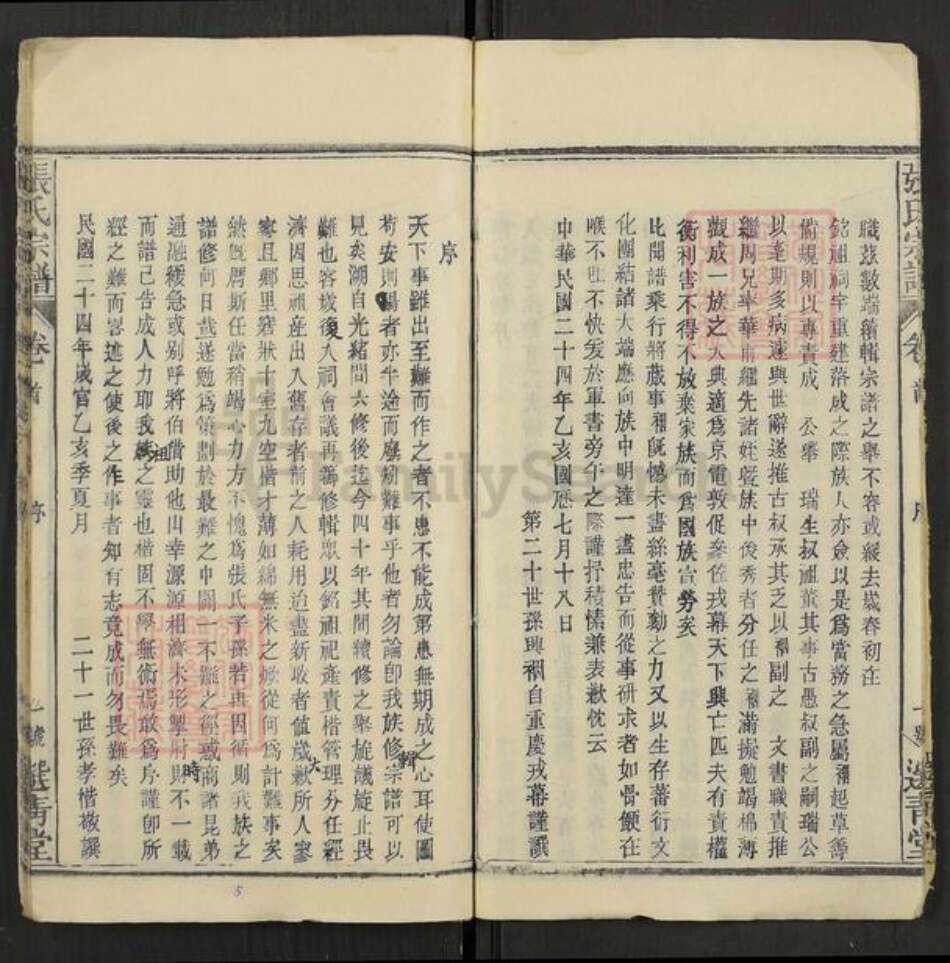 職茲數端續輯宗諸之舉不容或緩去歲春初在
銘祖祠宇重建落成之際族人亦僉以是為當務之急屬裀起草善
俻規則以專責成 公舉 瑞生叔祖董其事古愚叔副之嗣瑞公
以耄期多病遽與世辭遂推古叔承其乏以裀副之 文書職責推
繼周兄率華甫繼先諸姪暨族中俊秀者分任之裀滿擬勉竭棉薄
觀成一族之大典適為京電敦促叅佐戎幕天下興亡匹夫有責權
衡利害不得不放棄家族而為國族宣勞矣
比聞譜乘行將蕆事裀旣憾未書絲毫贊勷之力又以生存蕃衍文
化團結諸大端應向族中明達一盡忠告而從事研求者如骨鯁在
喉不吐不快爰於軍書旁午之際謹抒積愫兼表歉忱云
中華民國二十四年乙亥國厯七月十八日
第二十世孫興裀自重慶戎幕謹譔
序
天下事雖出至難而作之者不患不能成第患無期成之心耳使圖
苟安則陽者亦半途而廢矧難事乎他者勿論卽我族修宗譜可以
見矣湖自光緒間六修後迄今四十年其間續修之舉旋議旋止畏
難也容歲復入祠會議再籌修輯眾以銘祖祀產責楷管理分任經
濟因思祖産出入舊存者前之人耗用迨盡新收者值歲歉所人寥
寥且鄉里窘狀十室九空楷才薄如綿無米之炊從何為計難事矣
然旣膺斯任當稍竭心力方不愧為張氏子孫若再因循則我族之
譜修何日哉遂勉為策劃於最難之中闢一不難之徑或商諸昆弟
通融緩急或别呼將伯借助他山幸源源相濟未形掣肘時不一載
而譜已告成人力耶我祖之靈也楷固不學無術焉敢為序謹卽所
經之難而畧述之使後之作事者知有志竟成而勿畏難矣
民國二十四年歲官乙亥季夏月 二十一世孫孝楷敬譔
張氏宗譜 卷首 序 選青堂
5
FamilySearch